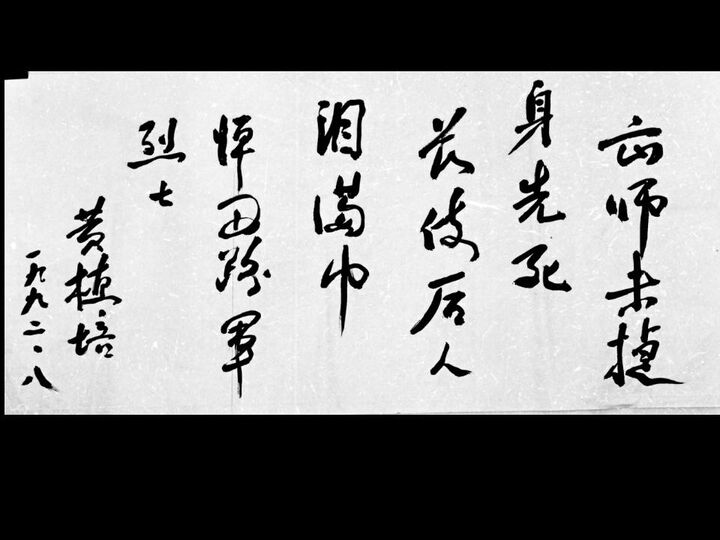 出师未捷
身先死
长使后人
泪满巾
悼西路军
烈士
黄植培
一九九二·八